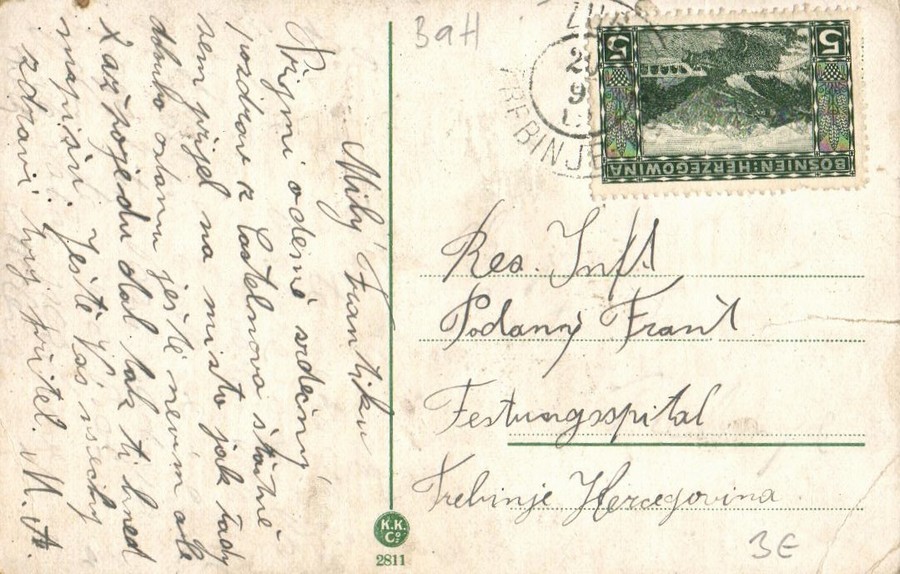 Milý Frantíku
Přijmi odemě srdečný
pozdrav z Castelnova štastně
sem přijel na místo jak tady
dlouho ostanu ještě nevím ale
až pojedu dal tak ti hned
napíšu. Ještě Vás všechny
zdraví tvůj přítel. M. A.
K.K.
Co
2811
BaH
TREBINJE
5
5
BOSNIEN-HERZEGOWINA
Res. Inft
Podaný Frant
Festungsspital
Trebinje Hercegovina
BE